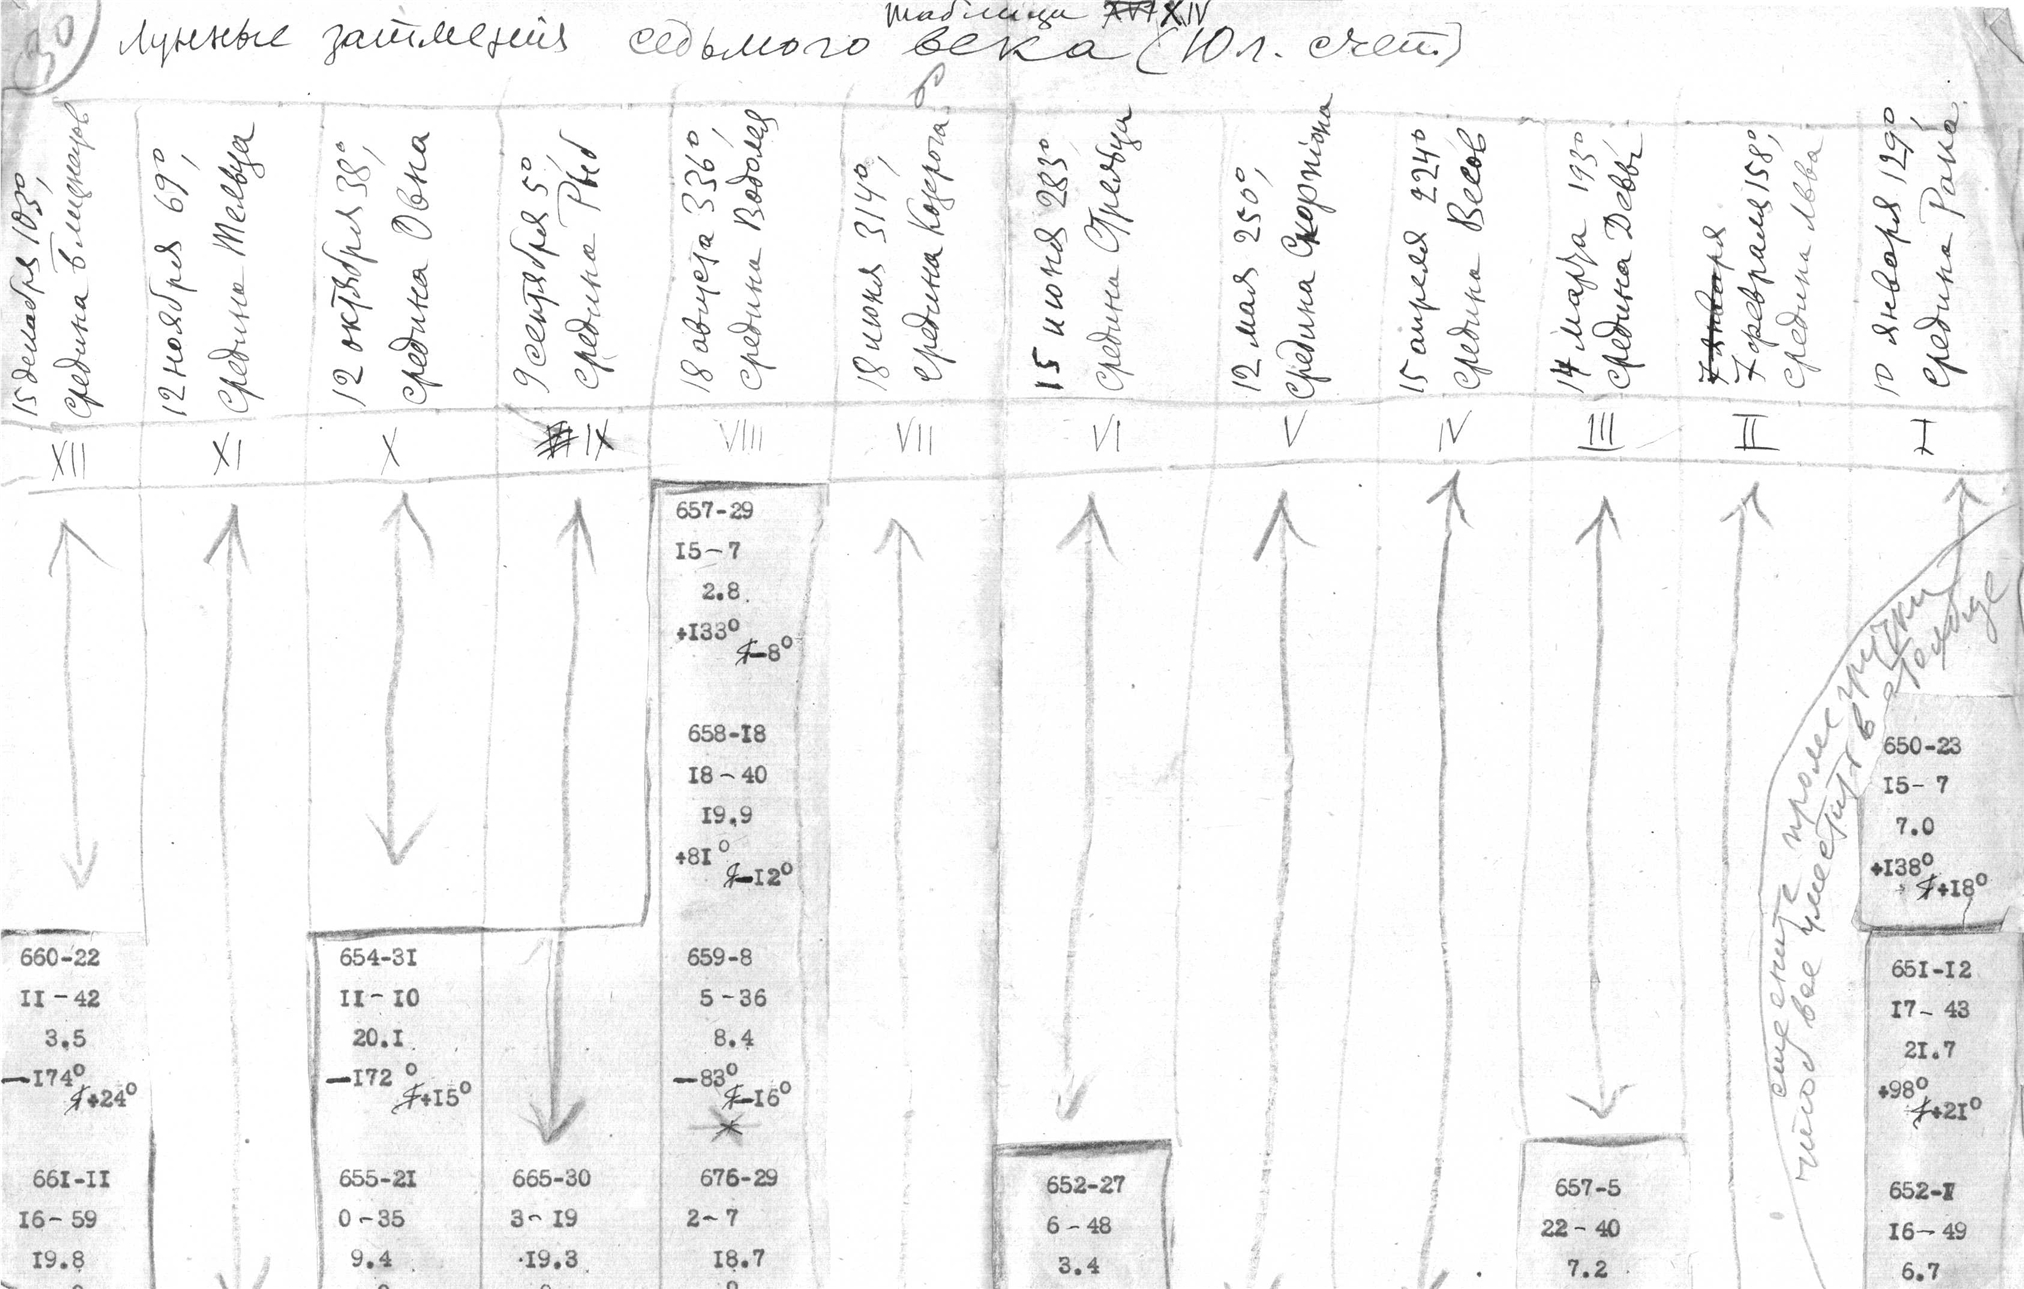 30
Таблица XIV
Лунные затмения седьмого века (Юл. счет.)
15 декабря 103°,
средина Близнецов
12 ноября 69°,
средина Тельца
12 октября 38°,
средина Овна
9 сентября 5°,
средина Рыб
18 августа 336°,
средина Водолея
18 июля 314°,
средина Козерога
15 июня 283°
средина Стрельца
12 мая 250°,
средина Скорпiона
15 апреля 224°
средина Весов
14 марта 193°
средина Девы
7 января
7 февраля 158°,
средина Льва
10 января 129°,
средина Рака
XII XI X IX VIII VII VI V IV III II I
657-29
I5-7
2.8
+I33°
-8°
658-I8
I8-40
I9.9
+8I°
-I2°
659-8
5-36
8.4
-83°
-I6°
676-29
2-7
I8.7
660-22
II-42
3.5
-I74°
+24°
66I-II
I6-59
I9.8
654-3I
II-I0
20.I
-I72°
+I5°
655-2I
0-35
9.4
665-30
3-I9
I9.3
652-27
6-48
3.4
657-5
22-40
7.2
650-23
I5-7
7.0
+I38°
+I8°
65I-I2
I7-43
2I.7
+98°
+2I°
652-I
I6-49
6.7
чтоб все уместить в таблице